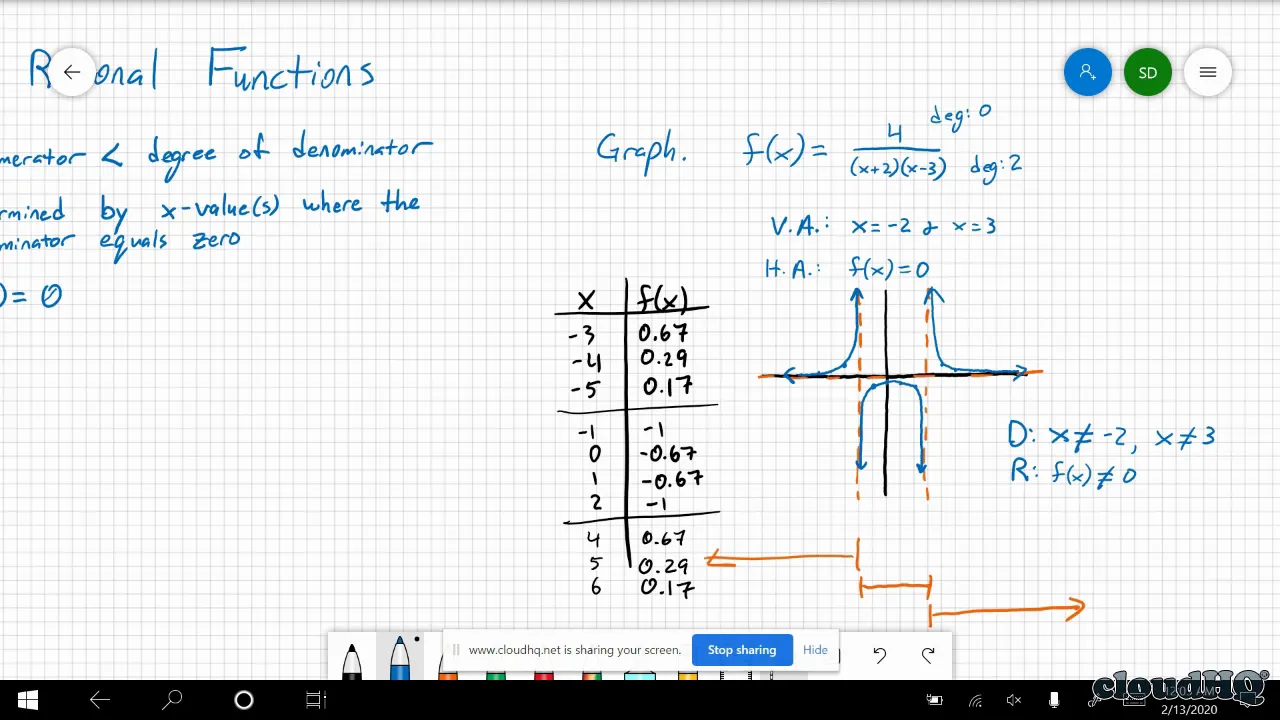 R onal Functions
SD
merator < degree of denominator
rmined by x-value(s) where the
minator equals zero
)= 0
Graph. f(x) = 4 / (x+2)(x-3)
deg: 0
deg: 2
V.A.: x = -2 & x = 3
H.A.: f(x) = 0
x f(x)
-3 0.67
-4 0.29
-5 0.17
-1 -1
0 -0.67
1 -0.67
2 -1
4 0.67
5 0.29
6 0.17
D: x ≠ -2, x ≠ 3
R: f(x) ≠ 0
www.cloudhq.net is sharing your screen. Stop sharing Hide
cloudHQ
2/13/2020